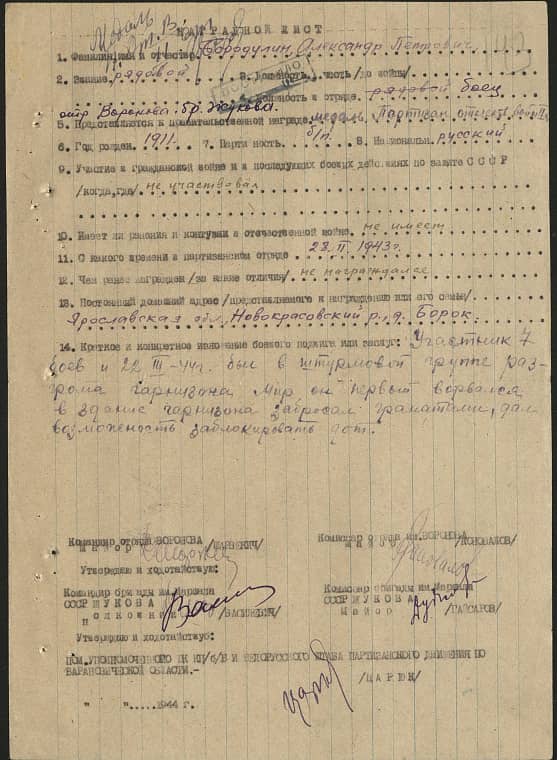 Медаль
НАГРАДНОЙ ЛИСТ
1. Фамилия, имя и отчество Бородулин, Александр Петрович
2. Звание рядовой 3. Должность, часть /до войны/
должность в отряде рядовой боец
отр Воронова бр. Жукова.
5. Представляется к правительственной награде медаль "Партизан отечеств. войны II
6. Год рожден. 1911. 7. Партийность б/п. 8. Националь. русский
9. Участие в гражданской войне и в последующих боевых действиях по защите СССР
/когда, где/ не участвовал
10. Имеет ли ранения и контузии в отечественной войне не имеет
11. С какого времени в партизанском отряде 28.II 1943г.
12. Чем ранее награжден /за какие отличия/ не награждался
13. Постоянный домашний адрес /представляемого к награждению или его семьи/
Ярославская обл, Новокрасовский р., д. Борок.
14. Краткое и конкретное изложение боевого подвига или заслуг: Участник 7
боев и 22 III-44г. был в штурмовой группе раз-
грома гарнизона Мир он первый ворвался
в здание гарнизона забросал гранатами, дал
возможность заблокировать дот.
Командир отряда ВОРОНОВА
майор /ЦАРЕВИЧ/
Комиссар отряда им. ВОРОНОВА
/КОНОВАЛОВ/
Утверждаю и ходатайствую:
Командир бригады им. Маршала
СССР ЖУКОВА
подполковник /ВАСИЛЕВИЧ/
Комиссар бригады им. Маршала
СССР ЖУКОВА
Майор /ГАПСАРОВ/
Утверждаю и ходатайствую:
ПОМ. УПОЛНОМОЧЕННОГО ЦК КП/б/Б И БЕЛОРУССКОГО ШТАБА ПАРТИЗАНСКОГО ДВИЖЕНИЯ ПО
БАРАНОВИЧЕСКОЙ ОБЛАСТИ.-
/ЦАРЮК/
" " .....1944 г.